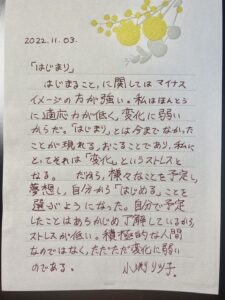 2022.11.03.
「はじまり」
はじまること、に関してはマイナス
イメージの方が強い。私はほんとう
に適応力が低く、変化に弱い
からだ。「はじまり」とは今までなかった
ことが現れる、おこることであり、私に
とってそれは「変化」というストレスと
なる。 だから、様々なことを予定し、
夢想し、自分から「はじめる」ことを
選ぶようになった。自分で予定
したことはあらかじめ了解しているから
ストレスが低い。積極的な人間
なのではなく、ただただ変化に弱い
のである。 小渕リツ子